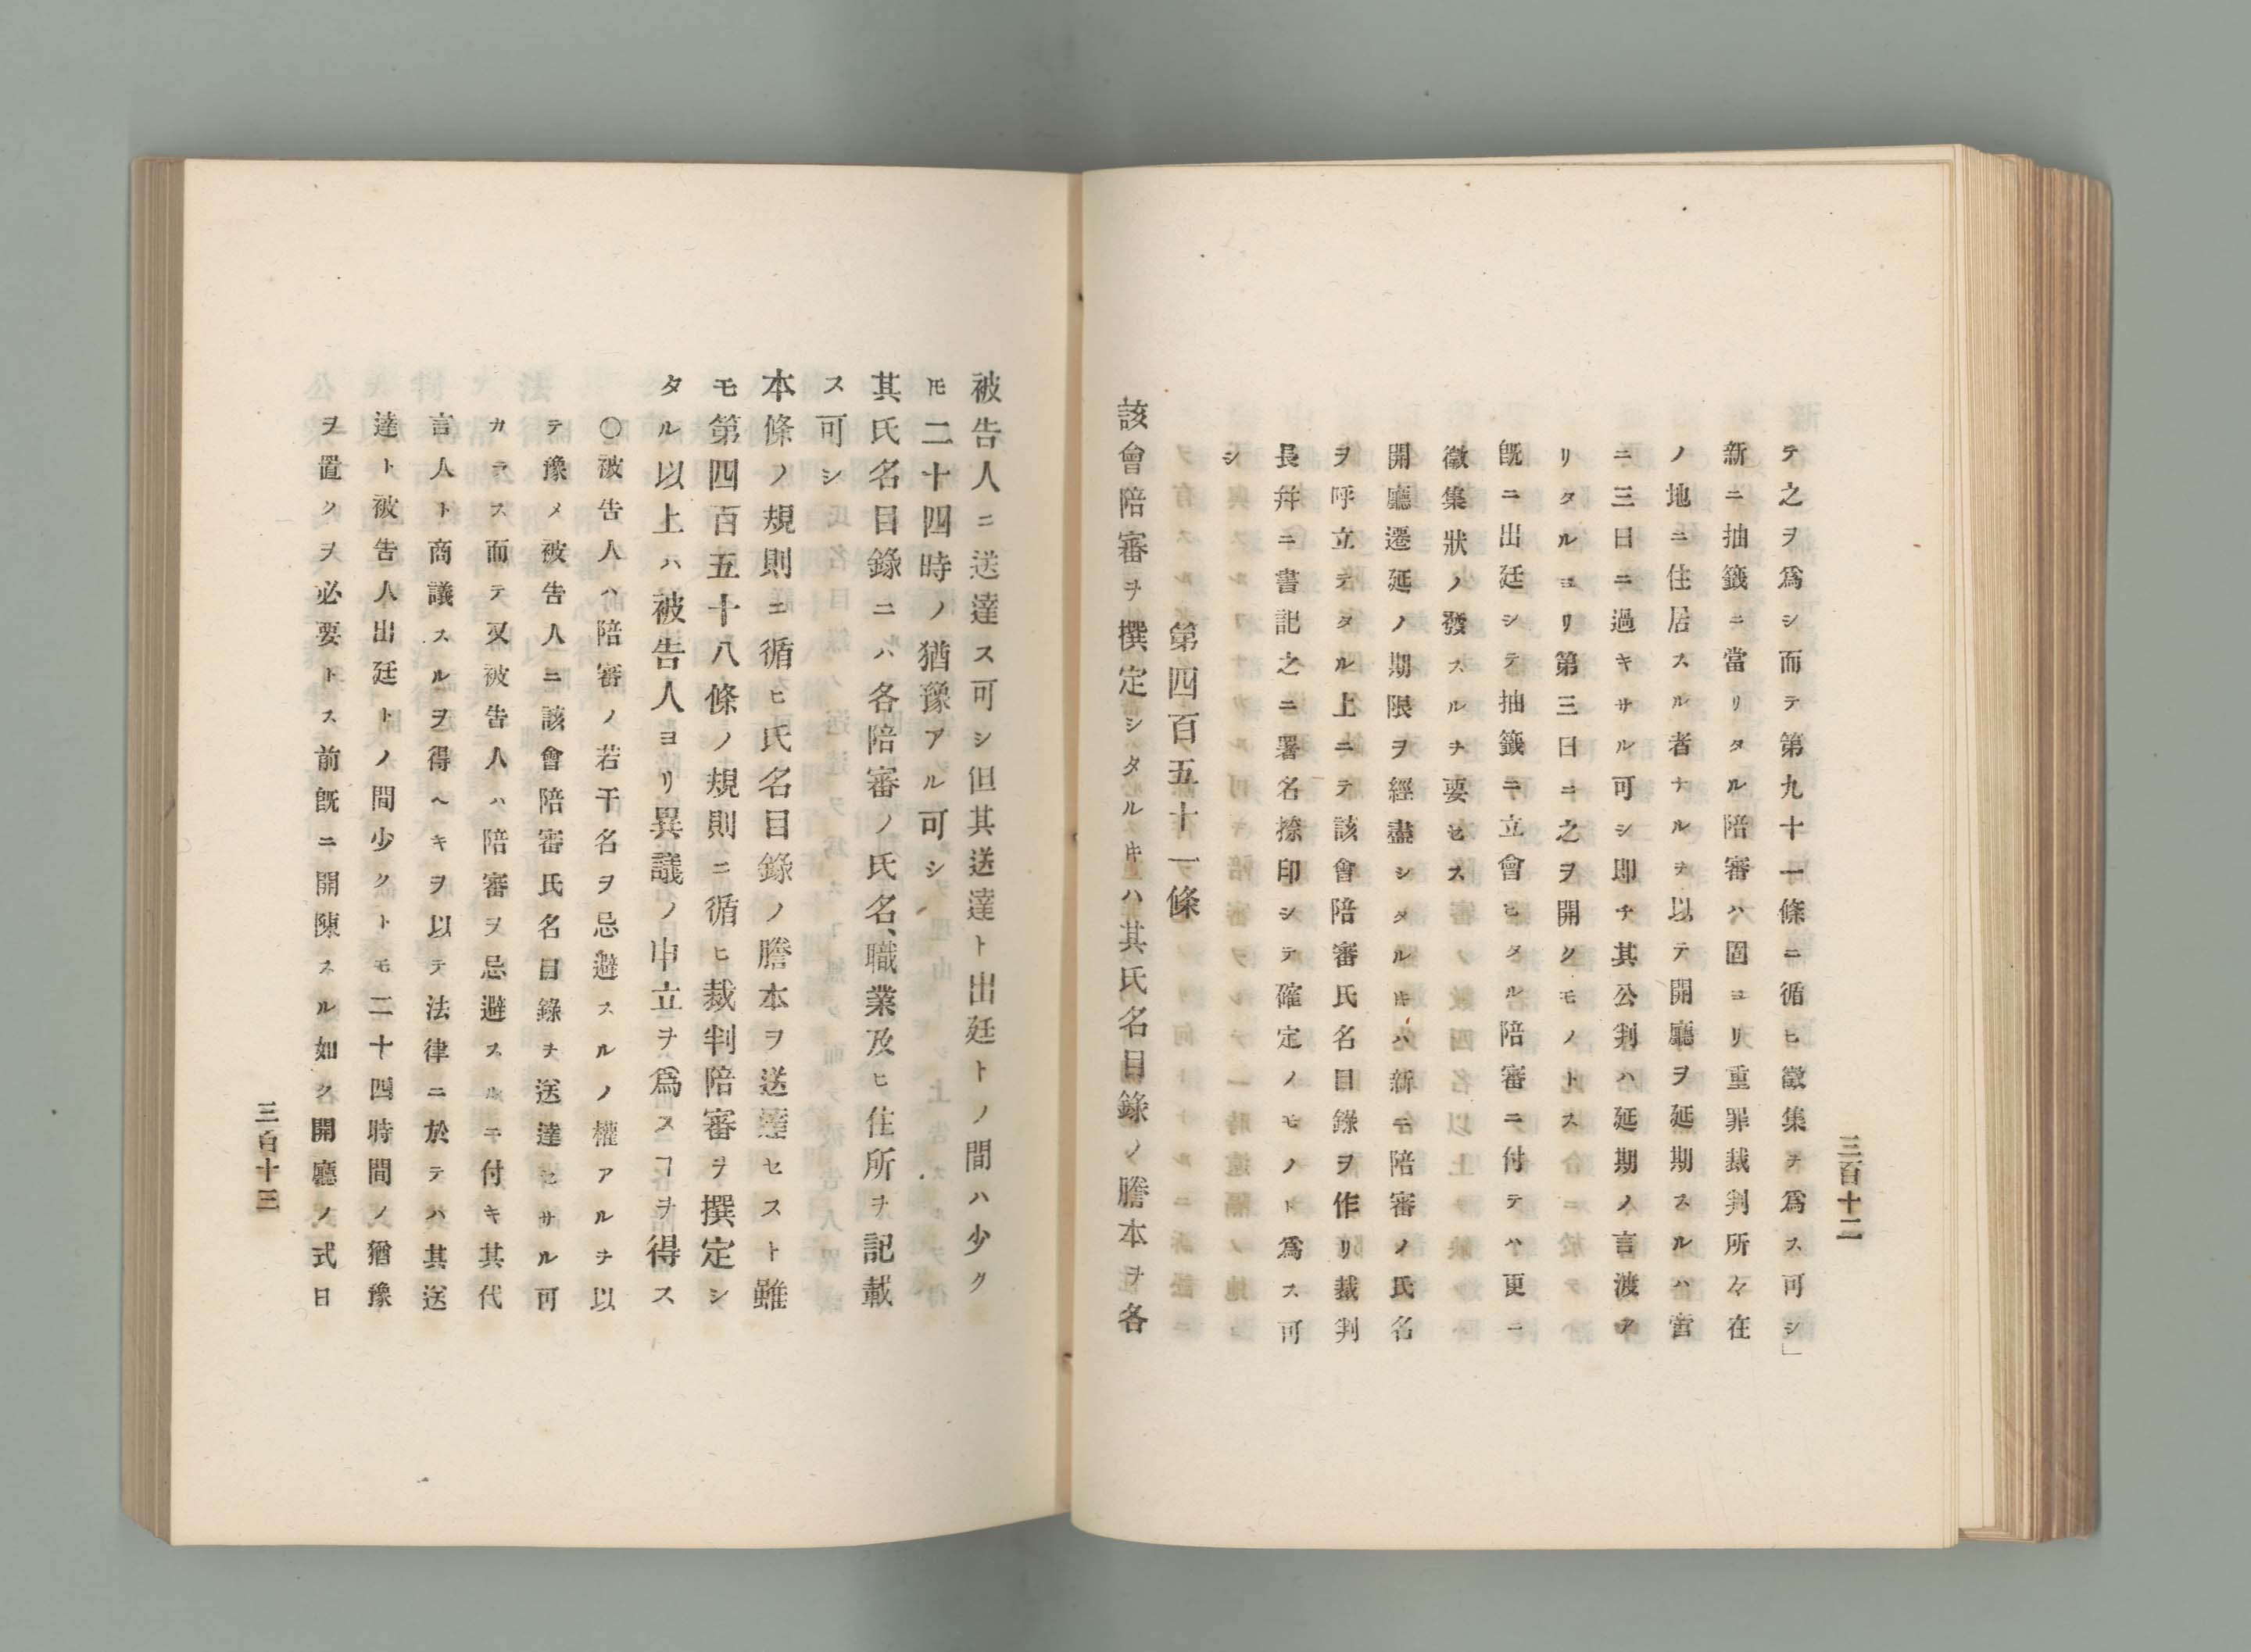 三百十二
テ之ヲ爲シ而テ第九十一條ニ循ヒ徵集ヲ爲ス可シ」
新ニ抽籤ニ當リタル陪審ハ固ヨリ重罪裁判所々在
ノ地ニ住居スル者ナルヲ以テ開廳ヲ延期スルハ啻
ニ三日ニ過キサル可シ卽チ其公判ハ延期ノ言渡ア
リタルヨリ第三日ニ之ヲ開クモノトス
旣ニ出廷シテ抽籤ニ立會ヒタル陪審ニ付テハ更ニ
徵集狀ノ發スルヲ要セス
開廳遷延ノ期限ヲ經盡シタルキハ新ニ陪審ノ氏名
ヲ呼立テタル上ニテ該會陪審氏名目錄ヲ作リ裁判
長幷ニ書記之ニ署名捺印シテ確定ノモノト爲ス可
シ
第四百五十一條
該會陪審ヲ撰定シタルキハ其氏名目錄ノ謄本ヲ各
被告人ニ送達ス可シ但其送達ト出廷トノ間ハ少ク
𪜈二十四時ノ猶豫アル可シ
其氏名目錄ニハ各陪審ノ氏名、職業及ヒ住所ヲ記載
ス可シ
本條ノ規則ニ循ヒ氏名目錄ノ謄本ヲ送達セスト雖
モ第四百五十八條ノ規則ニ循ヒ裁判陪審ヲ撰定シ
タル以上ハ被告人ヨリ異議ノ申立ヲ爲スヿヲ得ス
〇被告人ハ陪審ノ若干名ヲ忌避スルノ權アルヲ以
テ豫メ被告人ニ該會陪審氏名目錄ヲ送達セサル可
カラス而テ又被告人ハ陪審ヲ忌避スルニ付キ其代
言人ト商議スルヲ得ヘキヲ以テ法律ニ於テハ其送
達ト被告人出廷トノ間少クトモ二十四時間ノ猶豫
ヲ置クヲ必要トス前旣ニ開陳スル如ク開廳ノ式日
三百十三